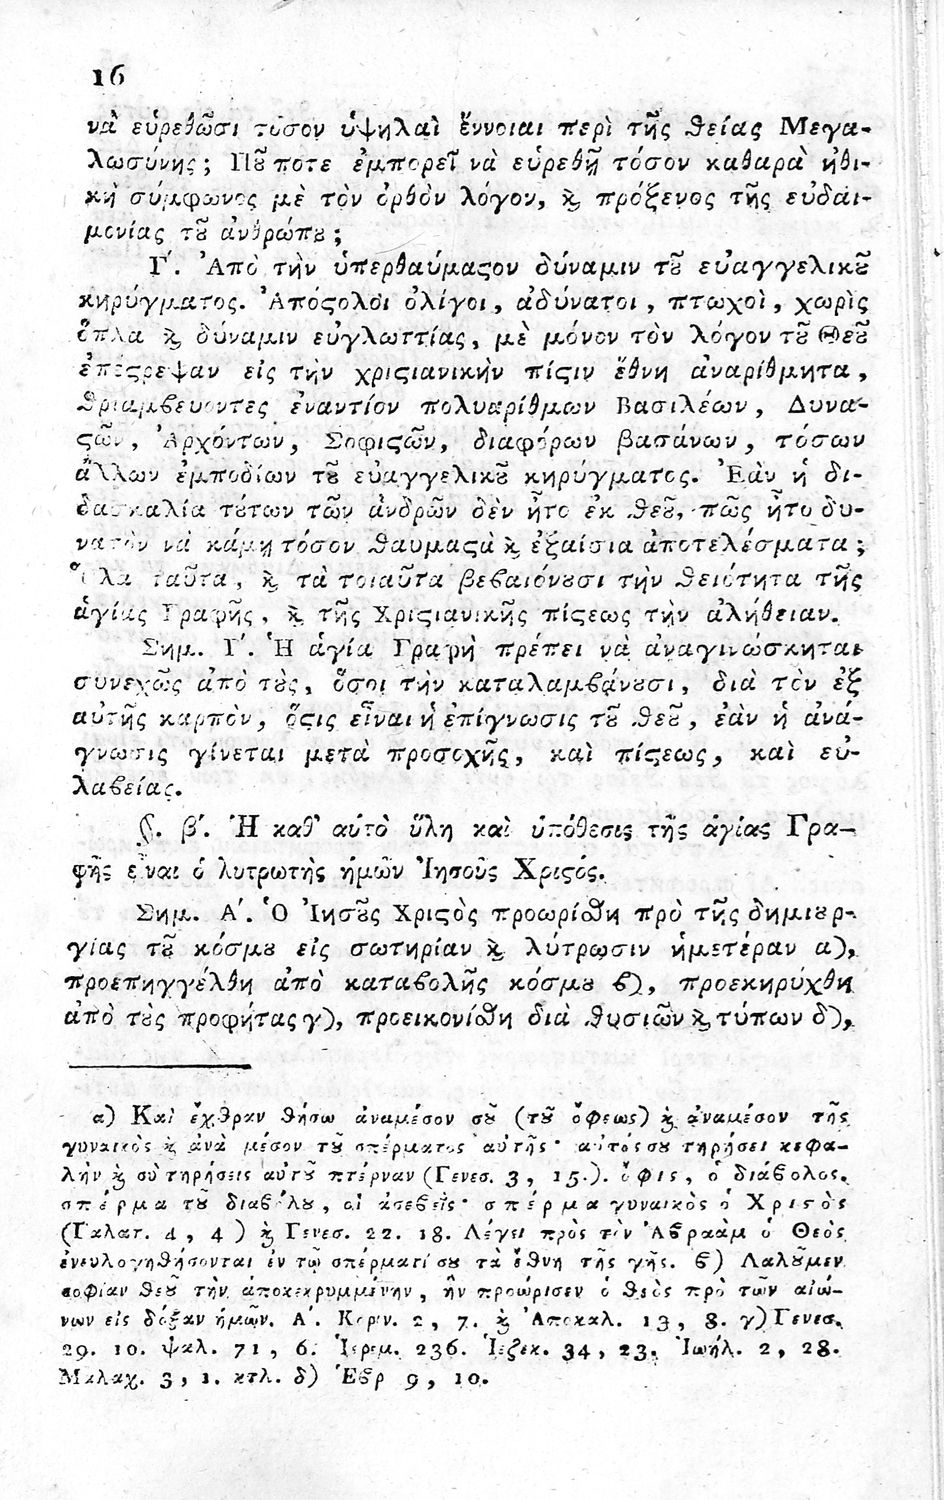 16
νὰ εὑρεθῶσι τόσον ὑψηλαὶ ἔννοιαι περὶ τῆς θείας Μεγα-
λωσύνης; Πȣ͂ ποτε ἐμπορεῖ νὰ εὑρεθῇ τόσον καθαρὰ ἠθι-
κὴ σύμφωνος μὲ τὸν ὀρθὸν λόγον, ϗ πρόξενος τῆς εὐδαι-
μονίας τȣ͂ ἀνθρώπȣ;
Γ΄. Ἀπὸ τὴν ὑπερθαύμαϛον δύναμιν τȣ͂ εὐαγγελικȣ͂
κηρύγματος. Ἀπόϛολοι ὀλίγοι, ἀδύνατοι, πτωχοὶ, χωρὶς
ὅπλα ϗ δύναμιν εὐγλωττίας, μὲ μόνον τὸν λόγον τȣ͂ Θεȣ͂
ἐπέϛρεψαν εἰς τὴν χριϛιανικὴν πίϛιν ἔθνη ἀναρίθμητα,
θριαμβεύοντες ἐναντίον πολυαρίθμων Βασιλέων, Δυνα-
ϛῶν, Ἀρχόντων, Σοφιϛῶν, διαφόρων βασάνων, τόσων
ἄλλων ἐμποδίων τȣ͂ εὐαγγελικȣ͂ κηρύγματος. Ἐὰν ἡ δι-
δασκαλία τȣ́των τῶν ἀνδρῶν δὲν ἦτο ἐκ θεȣ͂, πῶς ἦτο δυ-
νατὸν νὰ κάμῃ τόσον θαυμαϛὰ ϗ ἐξαίσια ἀποτελέσματα;
Ὅλα ταῦτα, ϗ τὰ τοιαῦτα βεβαιόνȣσι τὴν θειότητα τῆς
ἁγίας Γραφῆς, ϗ τῆς Χριϛιανικῆς πίϛεως τὴν ἀλήθειαν.
Σημ. Γ΄. Ἡ ἁγία Γραφὴ πρέπει νὰ ἀναγινώσκηται
συνεχῶς ἀπὸ τȣ̀ς, ὅσοι τὴν καταλαμβάνȣσι, διὰ τὸν ἐξ
αὐτῆς καρπὸν, ὅϛις εἶναι ἡ ἐπίγνωσις τȣ͂ θεȣ͂, ἐὰν ἡ ἀνά-
γνωσις γίνεται μετὰ προσοχῆς, καὶ πίϛεως, καὶ εὐ-
λαβείας.
§. β΄. Ἡ καθ' αὑτὸ ὕλη καὶ ὑπόθεσις τῆς ἁγίας Γρα-
φῆς εἶναι ὁ λυτρωτὴς ἡμῶν Ἰησοῦς Χριϛός.
Σημ. Α΄. Ὁ Ἰησȣ͂ς Χριϛὸς προωρίσθη πρὸ τῆς δημιȣρ-
γίας τȣ͂ κόσμȣ εἰς σωτηρίαν ϗ λύτρωσιν ἡμετέραν α),
προεπηγγέλθη ἀπὸ καταβολῆς κόσμȣ β), προεκηρύχθη
ἀπὸ τȣ̀ς προφήτας γ), προεικονίσθη διὰ θυσιῶν ϗ τύπων δ),
α) Καὶ ἔχθραν θήσω ἀναμέσον σȣ͂ (τȣ͂ ὄφεως) ϗ ἀναμέσον τῆς
γυναικὸς ϗ ἀνὰ μέσον τȣ͂ σπέρματος αὐτῆς· αὐτός σȣ τηρήσει κεφα-
λὴν ϗ σὺ τηρήσεις αὐτȣ͂ πτέρναν (Γενεσ. 3, 15.). ὄφις, ὁ διάβολος.
σπέρμα τȣ͂ διαβόλȣ, οἱ ἀσεβεῖς· σπέρμα γυναικὸς ὁ Χριϛὸς
(Γαλατ. 4, 4) ϗ Γενεσ. 22. 18. Λέγει πρὸς τὸν Ἀβραὰμ ὁ Θεὸς
ἐνευλογηθήσονται ἐν τῷ σπέρματί σȣ τὰ ἔθνη τῆς γῆς. β) Λαλȣ͂μεν
σοφίαν θεȣ͂ τὴν ἀποκεκρυμμένην, ἣν προώρισεν ὁ θεὸς πρὸ τῶν αἰώ-
νων εἰς δόξαν ἡμῶν. Α΄. Κοριν. 2, 7. ϗ Ἀποκαλ. 13, 8. γ) Γενεσ.
29. 10. ψαλ. 71, 6. Ἱερεμ. 236. Ἰεζεκ. 34, 23. Ἰωήλ. 2, 28.
Μαλαχ. 3, 1. κτλ. δ) Ἑβρ 9, 10.